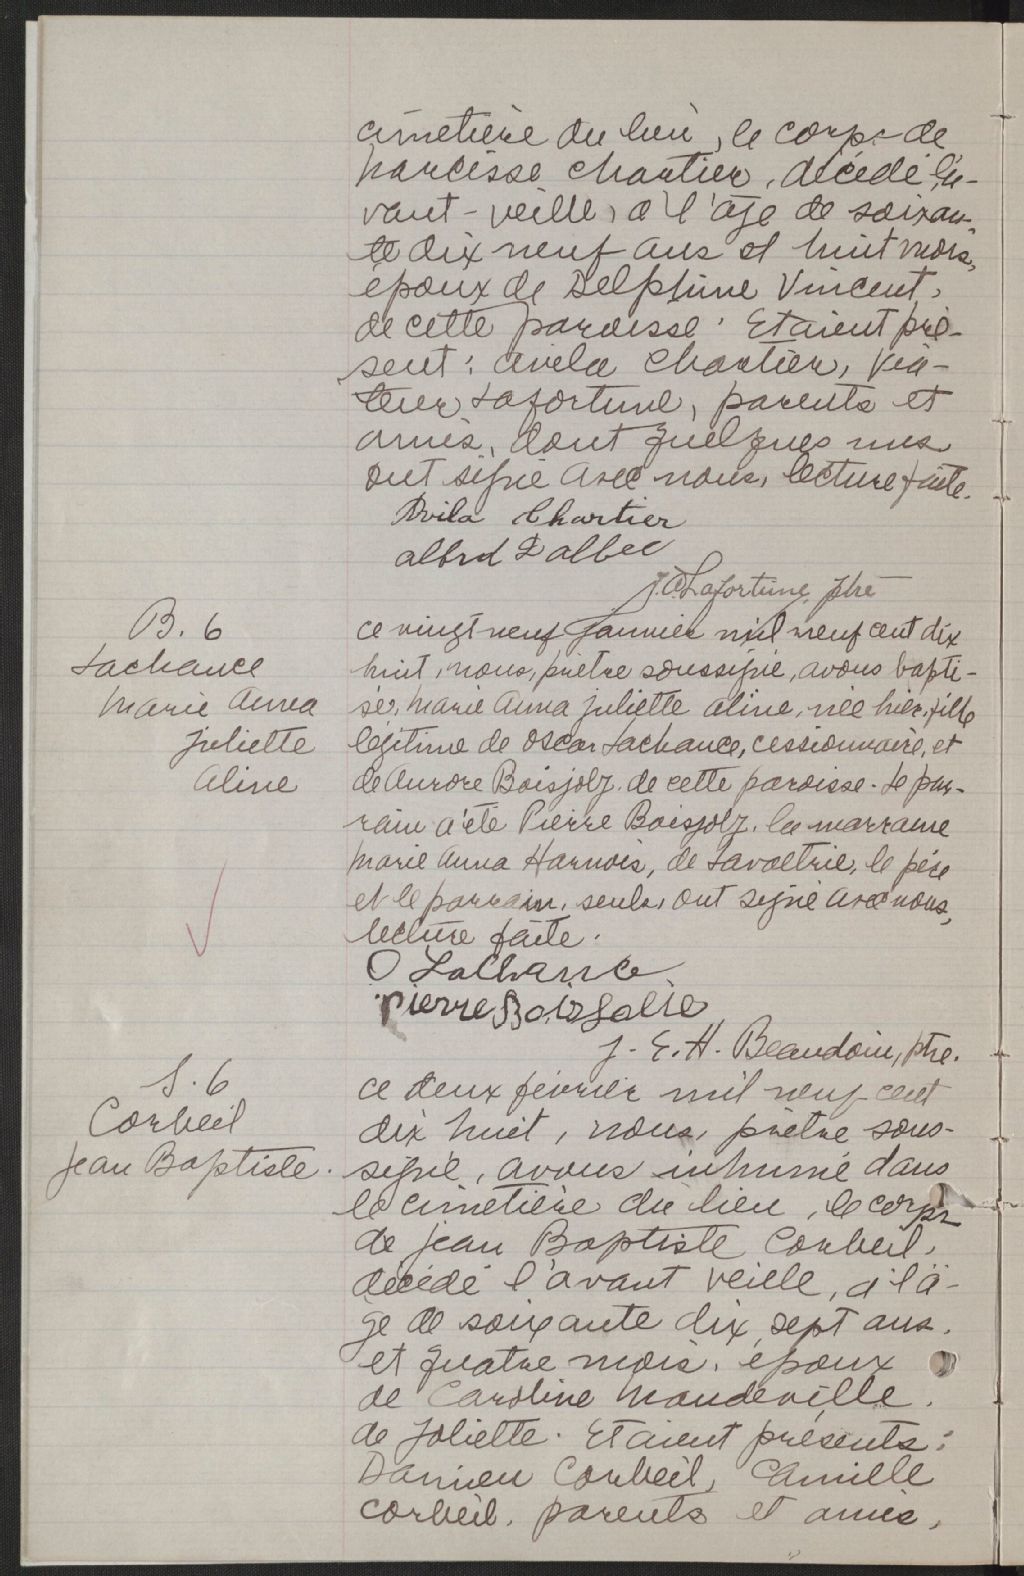 cimetière du lieu, le corps de
Narcisse Chartier, décédé l'a-
vant-veille, à l'âge de soixan-
te dix neuf ans et huit mois,
époux de Delphine Vincent,
de cette paroisse. Etaient pré-
sent: Avila Chartier, Via-
teur Lafortune, parents et
amis, dont quelques uns
ont signé avec nous, lecture faite.
Avila Chartier
Albed Dalbec
J.C. Lafortune, ptre
B. 6
Lachance
Marie Anna
Juliette
Aline
Ce vingt neuf janvier mil neuf cent dix
huit, nous, prêtre soussigné, avons bapti-
sé, Marie Anna Juliette Aline, née hier, fille
légitime de Oscar Lachance, cessionnaire, et
de Aurore Boisjoly, de cette paroisse. Le par-
rain a été Pierre Boisjoly, la marraine
Marie Anna Harnois, de Lavaltrie, le père
et le parrain, seuls, ont signé avec nous,
lecture faite.
O LaChance
Pierre Boisjolie
J. E. H. Beaudoin, ptre.
S. 6
Corbeil
Jean Baptiste.
Ce deux février mil neuf cent
dix huit, nous, prêtre sous-
signé, avons inhumé dans
le cimetière du lieu, le corps
de Jean Baptiste Corbeil,
décédé l'avant veille, à l'â-
ge de soixante dix sept ans,
et quatre mois, époux
de Caroline Mandeville,
de Joliette. Etaient présents:
Damien Corbeil, Camille
Corbeil, parents et amis,